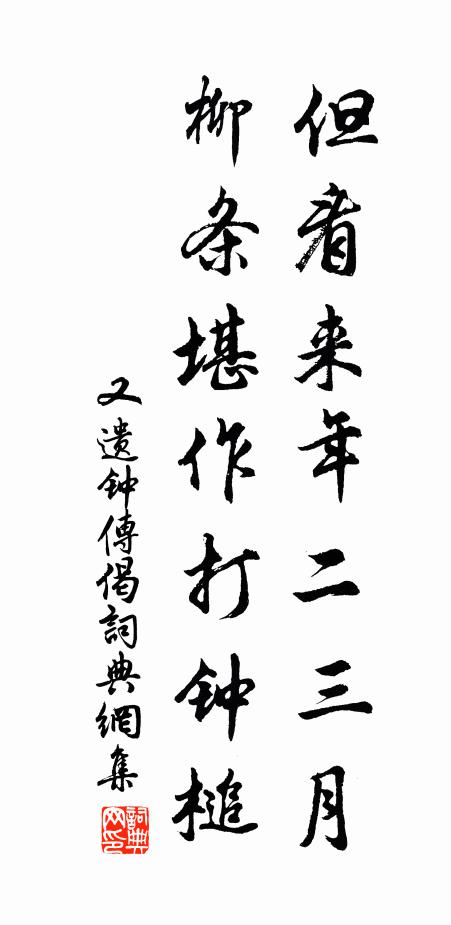 但看来年二三月
柳条堪作打钟槌
又遗钟傳偈詞典網集
詞典网印